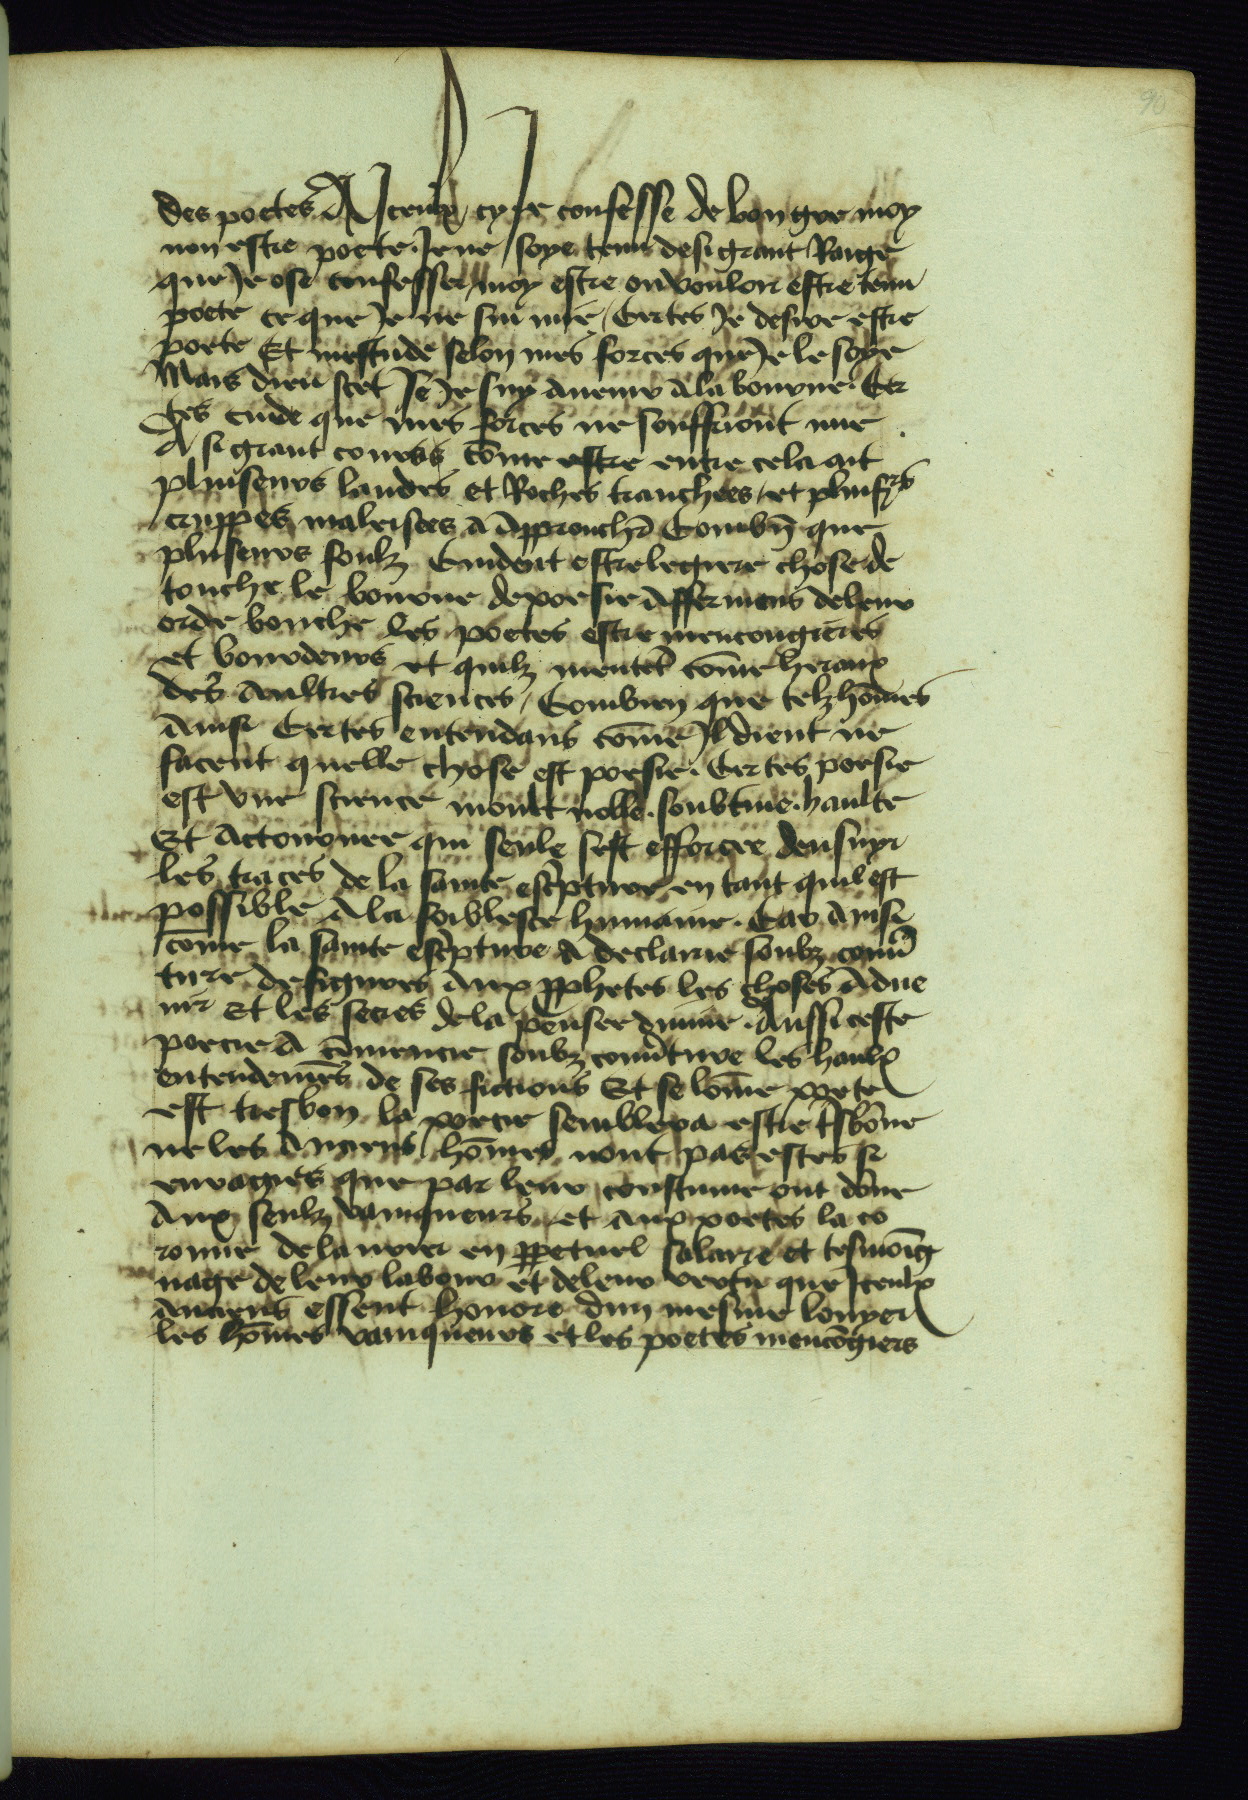 90
des poetes A Iceulx cy Je confesse de bon gre moy
non estre poete . Je ne soye tenu de si grant Raige
que Je ose confesser moy estre ou vouloir estre tenu
poete ce que Je ne sui mie / Certes Je desire estre
poete Et mestude selon mes forces que Je le soye
Mais dieu scet se Je suy auenu A la bourne . Cer
tes cuide que mes forces ne souffriront mie
A si grant cours cōme estre entre cela ait
pluiseurs landes et Roches tranchees / et pluisrs
crippes malaisees A Approuchr̄ Combn̄ que
pluseurs foulz Cuident estre legiere chose de
touche le bourne de poesie Affermans de leur
orde bouche les poetes estre mencongieres
et bourdeurs et quilz mentent cōme heraux
des Aultres sciences / Combien que telz hōmes
Ainsi Certes entendans cōme Il dient ne
sacent quelle chose est poesie . Certes poesie
est vne science moult noble . soubtiue . haulte
Et Actournee qui seule sest efforcee densuyr
les traces de la sainte escripture en tant quil est
possible A la foiblesce humaine . Car Ainsi
cōme la sainte escripture A declairie soubz couu̾
ture de figures Aux pphetes les choses Adue
nir Et les secres de la penser diuine . Aussi ceste
poecie A cōmencie soubz couu̾ture les haulx
entendemēs de ses fictions Et se lōme poete
est tresbon la poecie semblera estre tsbōne
ne les Anciens hōmes nont pas estes si
enragies que par leur coustume ont dōne
Aux seulz vainqueurs et aux poetes la co
ronne de laurier en ppetuel salaire et tesmoīg
nage de leur labour et de leur vertu que Iceulx
Anciens essent honore dun mesme louyer
les hōmes vainqueurs et les poetes mencōgiers